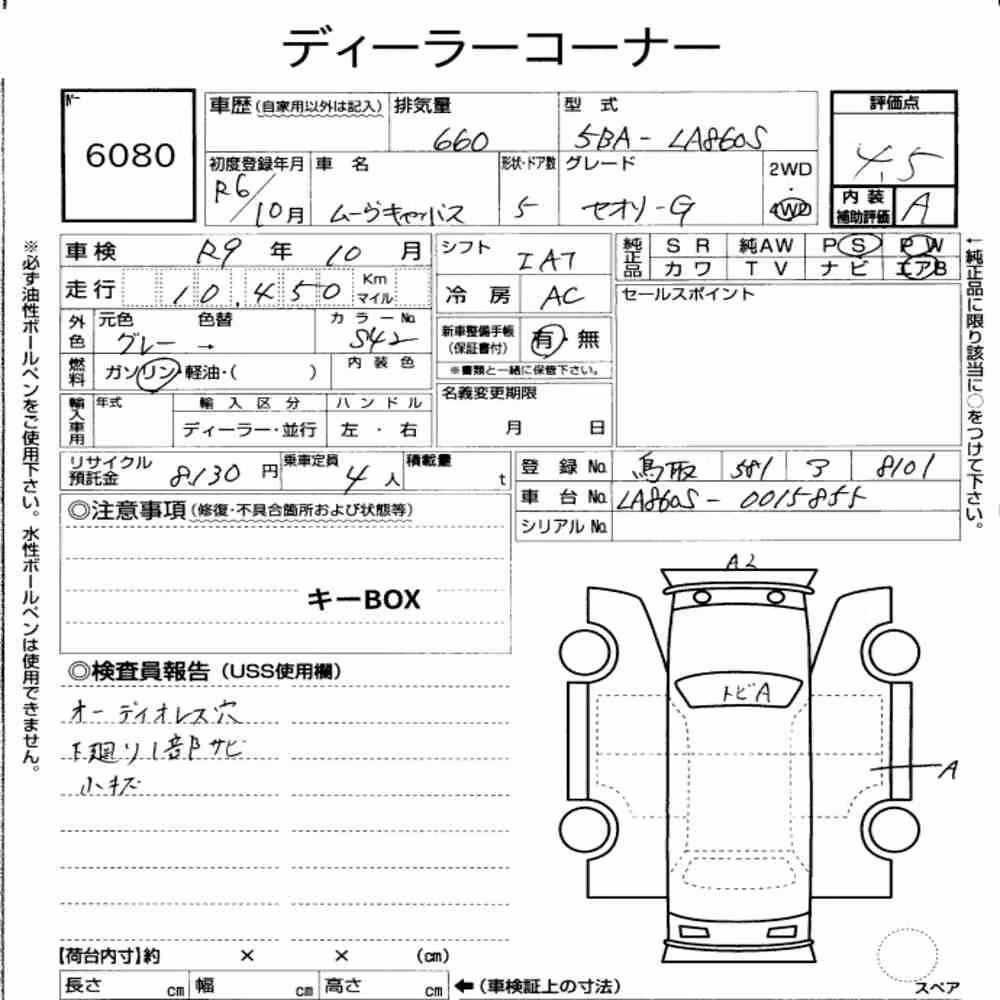 ディーラーコーナー
6080
車歴(自家用以外は記入)
排気量
660
型 式
5BA - LA860S
評価点
4.5
初度登録年月
R6/10月
車 名
ムーヴキャンバス
形状・ドア数
5
グレード
セオリーG
2WD
・
4WD
内装
補助評価
A
車検 R9 年 10 月
走行 10,450 Km
マイル
シフト IAT
冷房 AC
純正品
SR 純AW PS PW
カワ TV ナビ エアB
セールスポイント
外色
元色 色替 カラーNo.
グレー → S42
燃料
ガソリン・軽油・( )
内装色
新車整備手帳
(保証書付)
有・無
※書類と一緒に保管下さい。
名義変更期限
月 日
輸入車用
年式
輸入区分
ディーラー・並行
ハンドル
左・右
リサイクル
預託金
8,130 円
乗車定員
4人
積載量
t
登録No. 鳥取 581 ヲ 8101
車台No. LA860S - 0015855
シリアルNo.
◎注意事項(修復・不具合箇所および状態等)
キーBOX
◎検査員報告(USS使用欄)
オーディオレス穴
下廻り1部サビ
小キズ
A2
トビA
A
【荷台内寸】約 × × (cm)
長さ cm 幅 cm 高さ cm ←(車検証上の寸法)
スペア
※必ず油性ボールペンをご使用下さい。水性ボールペンは使用できません。
←純正品に限り該当に○をつけて下さい。